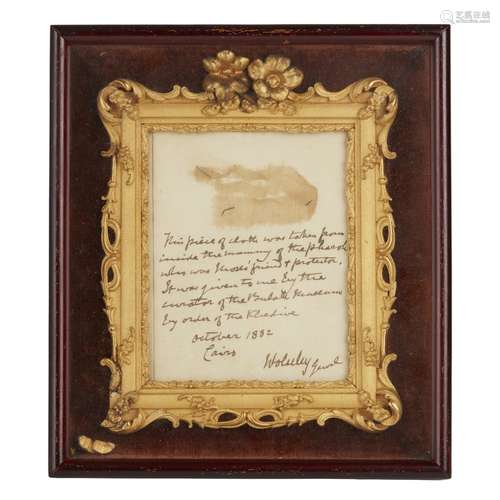 艺易拍卖
This piece of cloth was taken from
inside the mummy of the pharoh
who was Moses' friend & protector.
It was given to me by the
curator of the Bulak Museum
by order of the Khedive
October 1882
Cairo
Wolseley Genrl